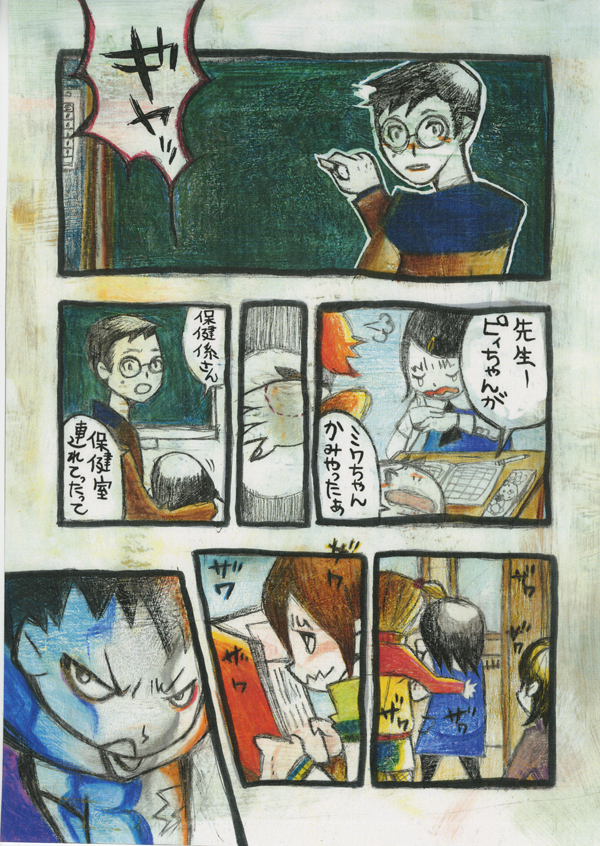 ギャッ
先生ー
ピィちゃんが
ミワちゃん
かみやったぁ
保健係さん
保健室
連れてったって
ザワ
ザワ
ザワ
ザワ
ザワ
ザワ
ザワ
ザワ